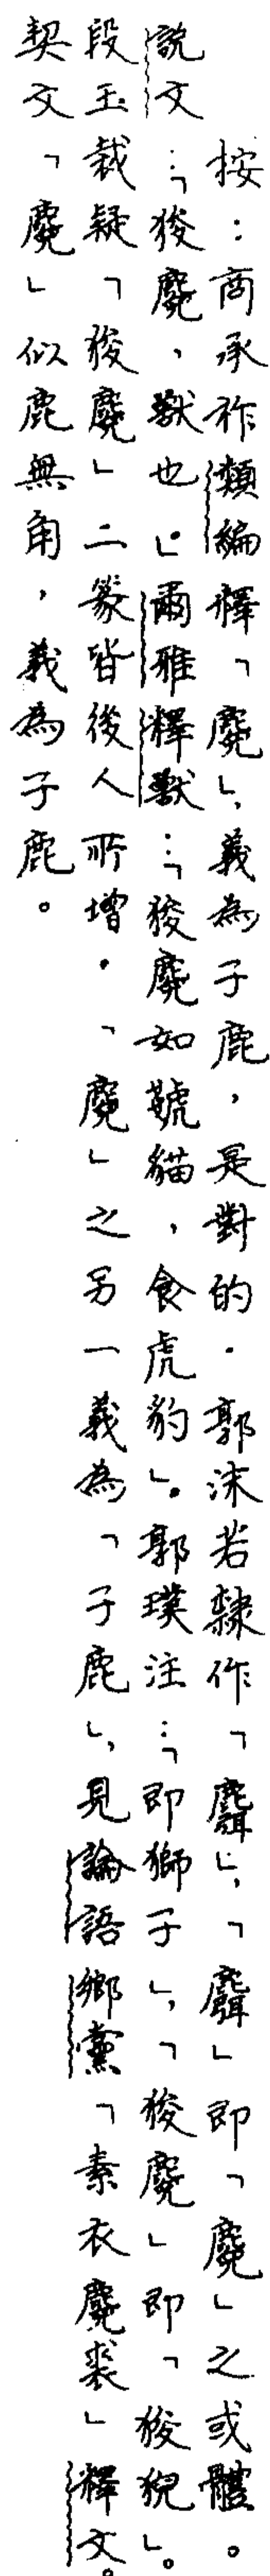 按：商承祚類編釋「麑」，義為子鹿，是對的．郭沫若隸作「麛」，「麛」即「麑」之或體。
說文：「狻麑，獸也。」爾雅釋獸：「狻麑如虦貓，食虎豹」。郭璞注：「即獅子」，「狻麑」即「狻猊」。
段玉裁疑「狻麑」二篆皆後人所增．「麑」之另一義為「子鹿」，見論語鄉黨「素衣麑裘」釋文。
契文「麑」似鹿無角，義為子鹿。